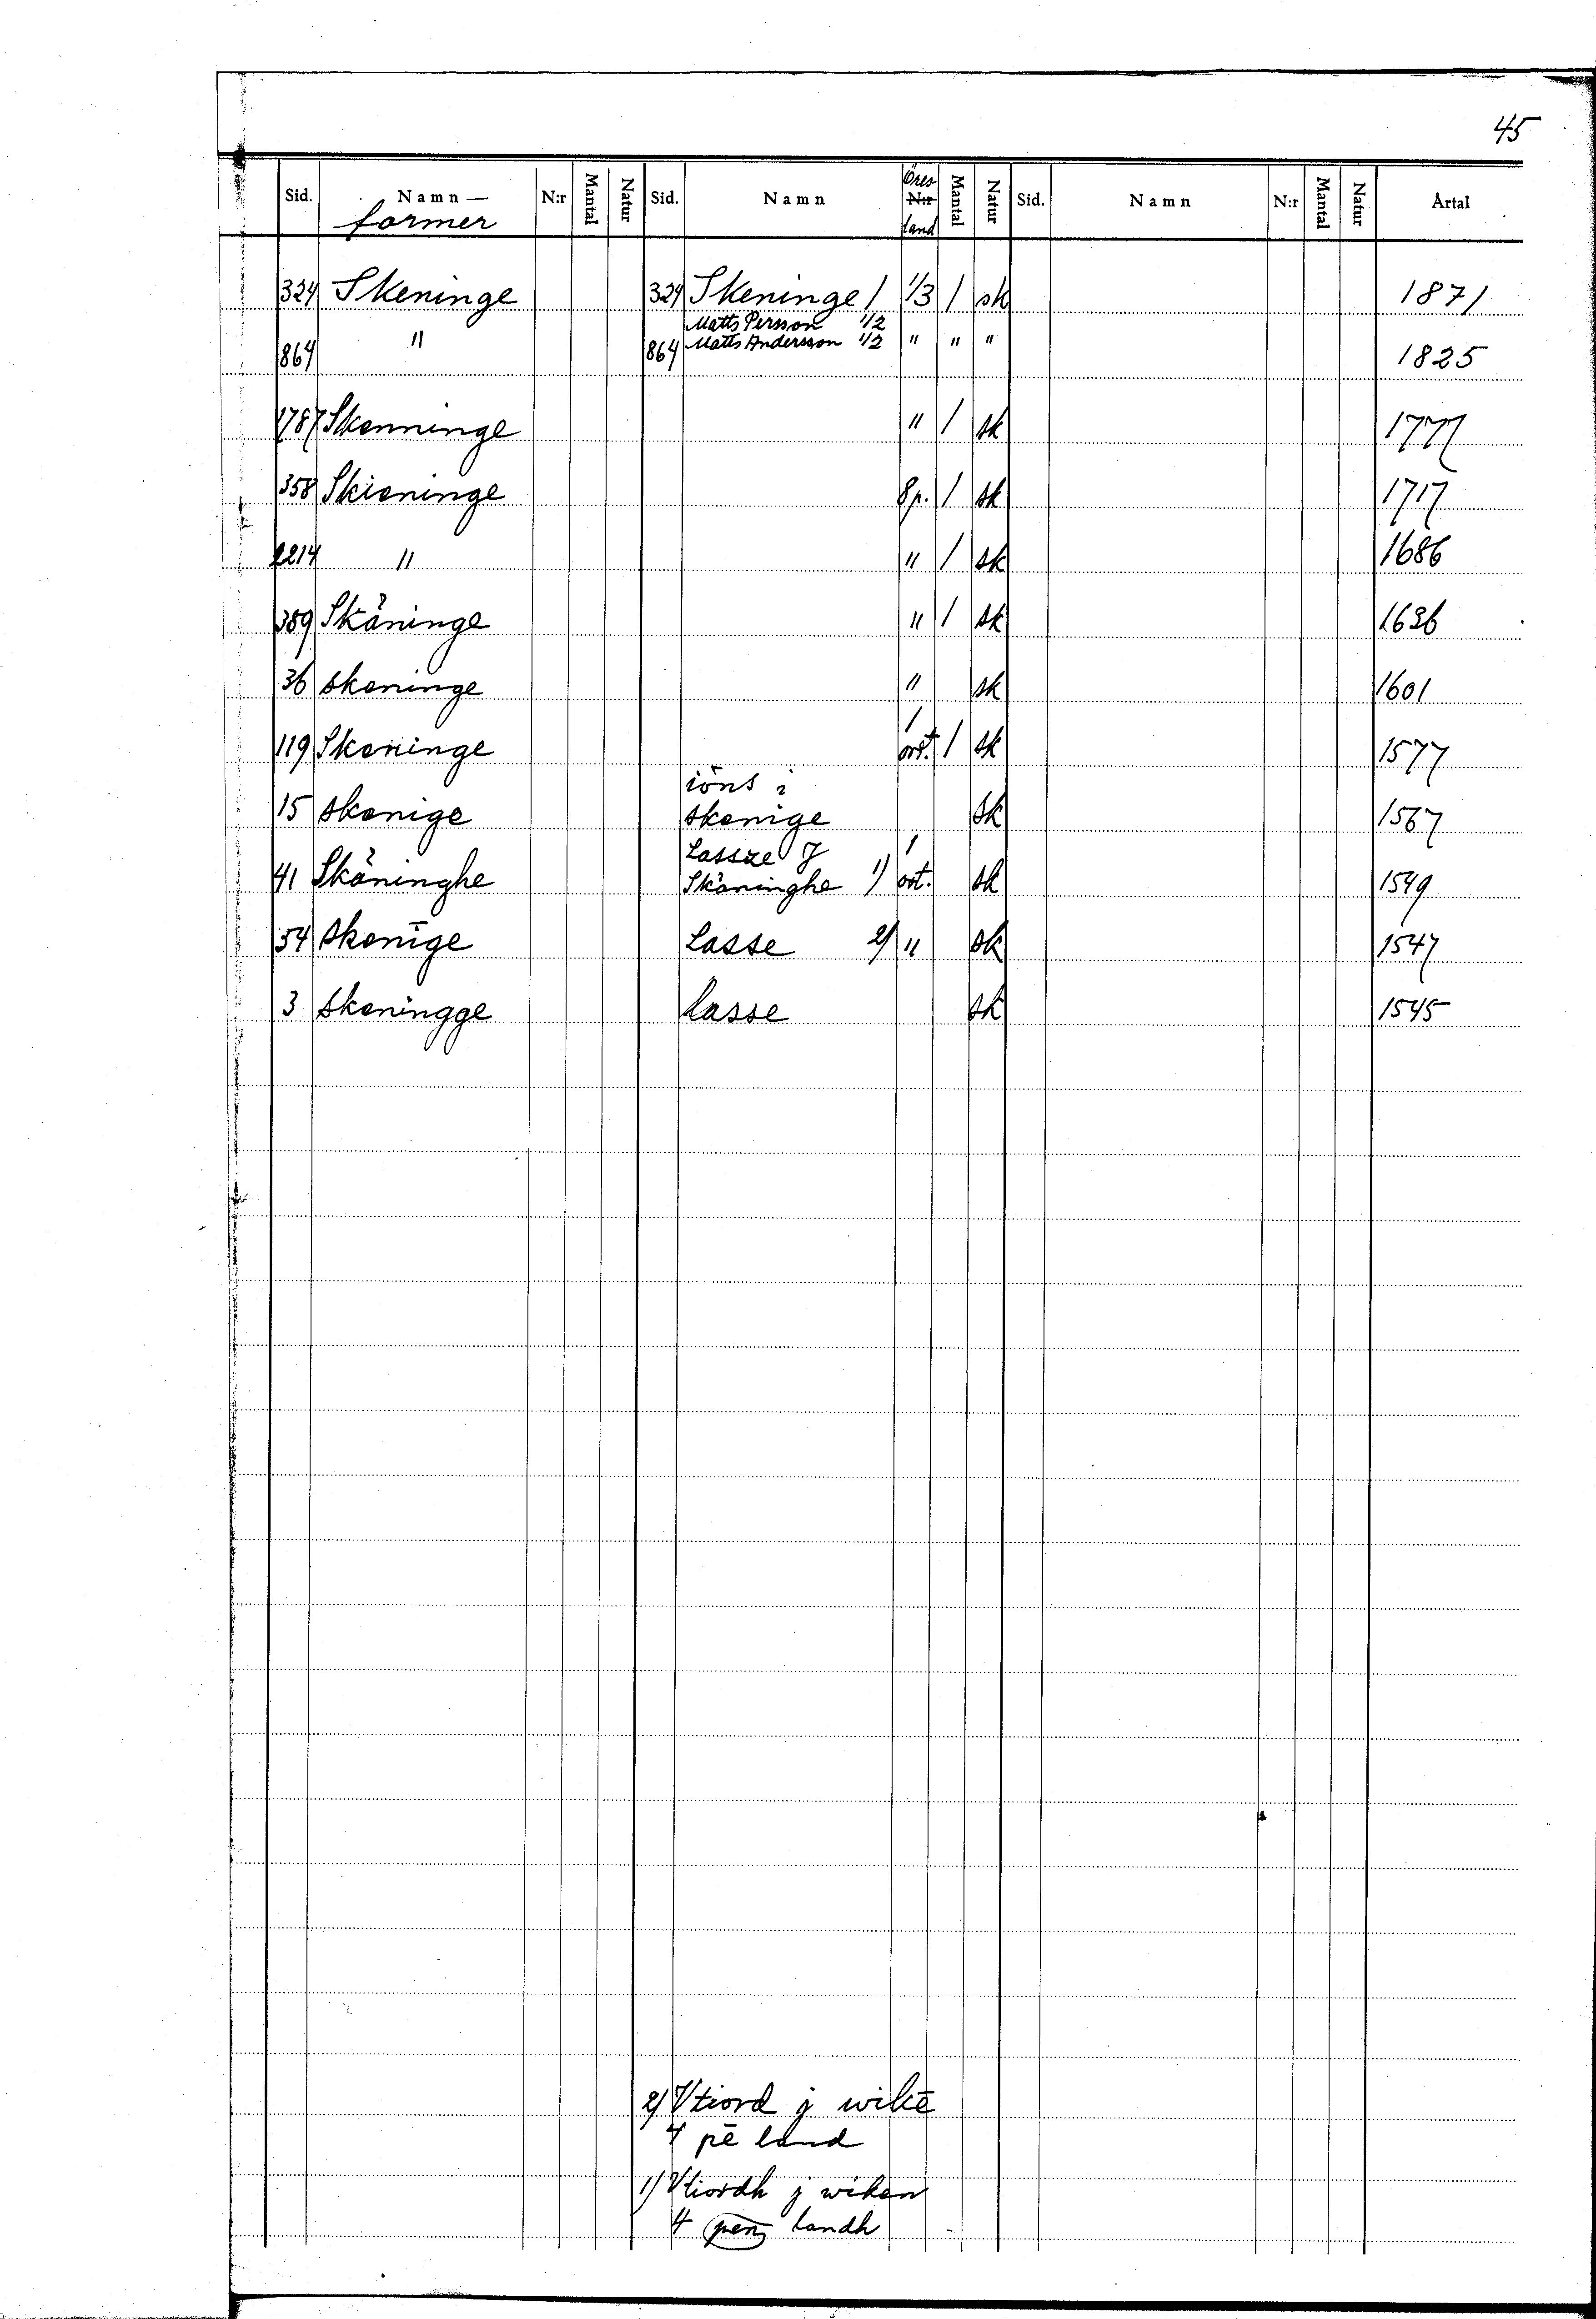 45
Sid. Namn— former N:r Mantal Natur Sid. Namn Öres N:r land Mantal Natur Sid. Namn N:r Mantal Natur Årtal
324 Skeninge 324 Skeninge 1 1/3 1 sk 1871
Matts Persson 1/2
864 " 864 Matts Andersson 1/2 " " " 1825
1787 Skenninge " 1 sk 1777
358 Skieninge 8 p. 1 sk 1717
2214 " " 1 sk 1686
389 Skäninge " 1 sk 1636
36 skeninge " sk 1601
119 Skeninge 1 ört. 1 sk 1577
iöns i
15 skenige skenige sk 1567
Lassze J 1
41 Skäninghe Skäninghe 1) ört. sk 1549
54 skenīge Lasse 2) " sk 1547
3 skeningge lasse sk 1545
2) Vtiord j wikē
4 pē land
1) Vtiordh j wiken
4 pen landh